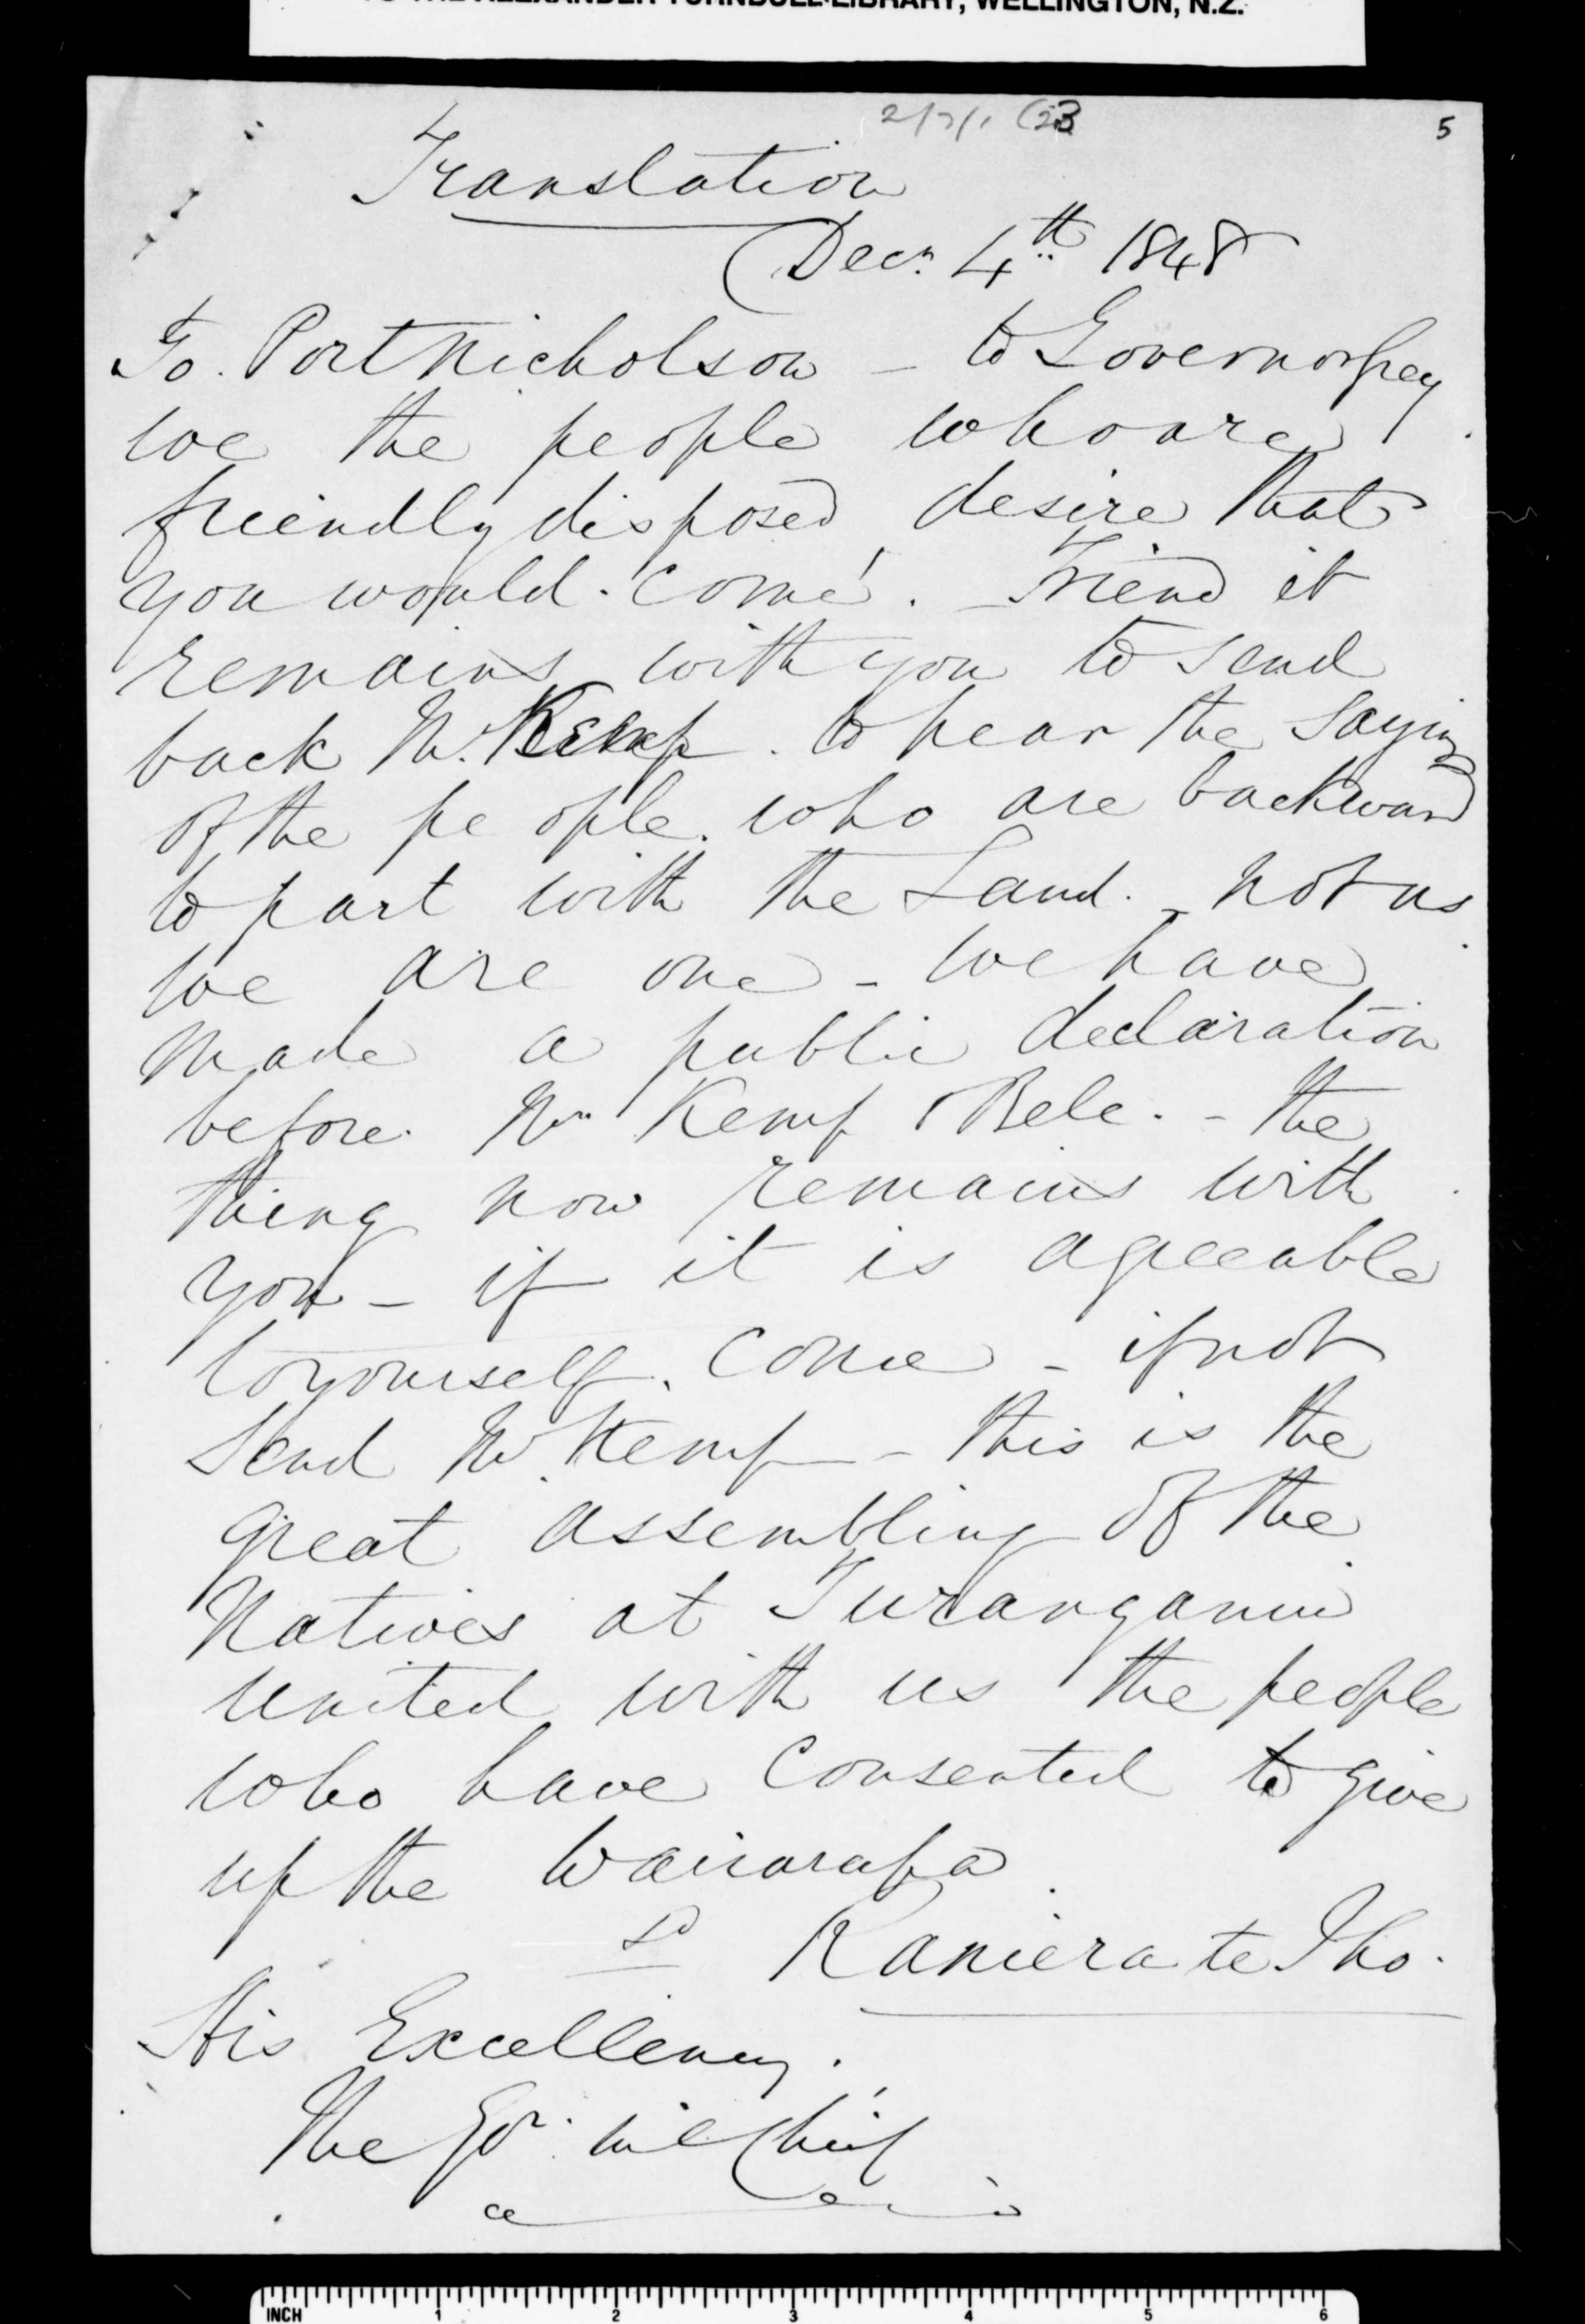 TO THE ALEXANDER TURNBULL LIBRARY, WELLINGTON, N.Z.
5
Translation
Decr. 4th 1848
To. Port Nicholson - to Governor Grey
We the people who are
friendly disposed desire that
you would. come. - Friend it
remains with you to send
back Mr. Kemp. to hear the saying
of the people. who are backward
to part with the Land. - not us
we are one - we have
made a public declaration
before. Mr Kemp & Bele. - the
thing now remains with
you - if it is agreeable
to yourself. come - if not
send Mr. Kemp - this is the
great assembling of the
Natives at Turanganui
united with us the people
who have consented to give
up the Wairarapa.
sd Raniera te Iho.
His Excellency.
The Gr. in Chief
INCH 1 2 3 4 5 6